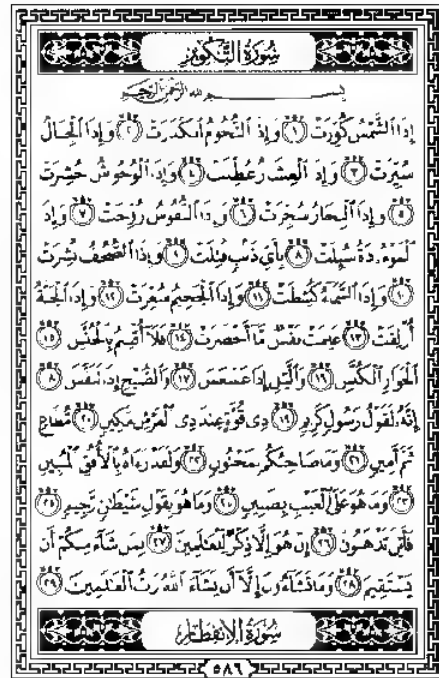 سُورَةُ التَّكْوِيرِ
بِسْمِ اللَّهِ الرَّحْمَٰنِ الرَّحِيمِ
إِذَا الشَّمْسُ كُوِّرَتْ ١ وَإِذَا النُّجُومُ انكَدَرَتْ ٢ وَإِذَا الْجِبَالُ
سُيِّرَتْ ٣ وَإِذَا الْعِشَارُ عُطِّلَتْ ٤ وَإِذَا الْوُحُوشُ حُشِرَتْ
٥ وَإِذَا الْبِحَارُ سُجِّرَتْ ٦ وَإِذَا النُّفُوسُ زُوِّجَتْ ٧ وَإِذَا
الْمَوْءُودَةُ سُئِلَتْ ٨ بِأَيِّ ذَنبٍ قُتِلَتْ ٩ وَإِذَا الصُّحُفُ نُشِرَتْ
١٠ وَإِذَا السَّمَاءُ كُشِطَتْ ١١ وَإِذَا الْجَحِيمُ سُعِّرَتْ ١٢ وَإِذَا الْجَنَّةُ
أُزْلِفَتْ ١٣ عَلِمَتْ نَفْسٌ مَّا أَحْضَرَتْ ١٤ فَلَا أُقْسِمُ بِالْخُنَّسِ ١٥
الْجَوَارِ الْكُنَّسِ ١٦ وَاللَّيْلِ إِذَا عَسْعَسَ ١٧ وَالصُّبْحِ إِذَا تَنَفَّسَ ١٨
إِنَّهُ لَقَوْلُ رَسُولٍ كَرِيمٍ ١٩ ذِي قُوَّةٍ عِندَ ذِي الْعَرْشِ مَكِينٍ ٢٠ مُّطَاعٍ
ثَمَّ أَمِينٍ ٢١ وَمَا صَاحِبُكُم بِمَجْنُونٍ ٢٢ وَلَقَدْ رَآهُ بِالْأُفُقِ الْمُبِينِ
٢٣ وَمَا هُوَ عَلَى الْغَيْبِ بِضَنِينٍ ٢٤ وَمَا هُوَ بِقَوْلِ شَيْطَانٍ رَّجِيمٍ ٢٥
فَأَيْنَ تَذْهَبُونَ ٢٦ إِنْ هُوَ إِلَّا ذِكْرٌ لِّلْعَالَمِينَ ٢٧ لِمَن شَاءَ مِنكُمْ أَن
يَسْتَقِيمَ ٢٨ وَمَا تَشَاءُونَ إِلَّا أَن يَشَاءَ اللَّهُ رَبُّ الْعَالَمِينَ ٢٩
سُورَةُ الِانفِطَارِ
٥٨٦